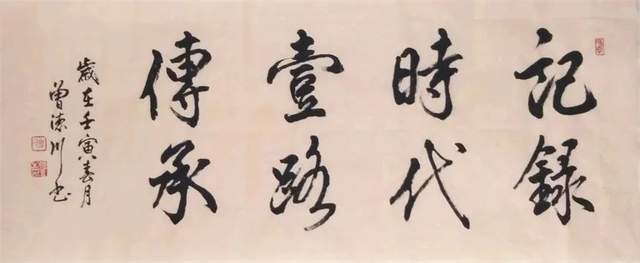 記錄
時代
壹路
傳承
歲在壬寅春月
曾德川书